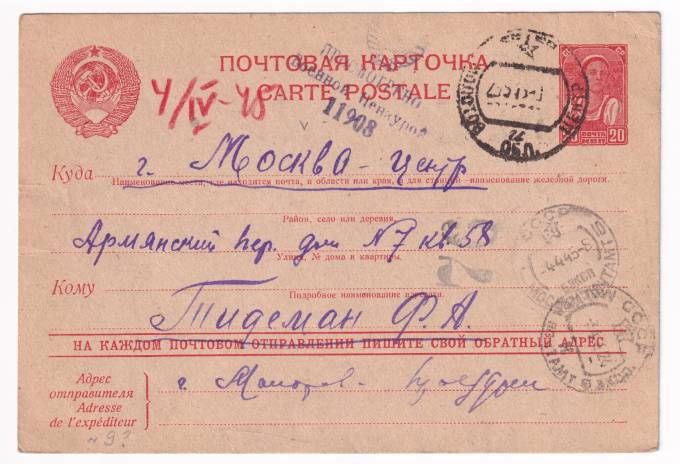 ПОЧТОВАЯ КАРТОЧКА
CARTE POSTALE
4/IV-45
Военной Цензурой
11908
ПОЧТА
20
20
Куда г. Москва-центр
Наименование места, где находится почта, и области или края, а для станции—наименование железной дороги.
Район, село или деревня.
Армянский пер. дом №7 кв. 58
Улица, № дома и квартиры.
Кому
Подробное наименование адресата.
Тидеман Ф.А.
НА КАЖДОМ ПОЧТОВОМ ОТПРАВЛЕНИИ ПИШИТЕ СВОЙ ОБРАТНЫЙ АДРЕС
Адрес
отправителя
Adresse
de l'expéditeur
г.